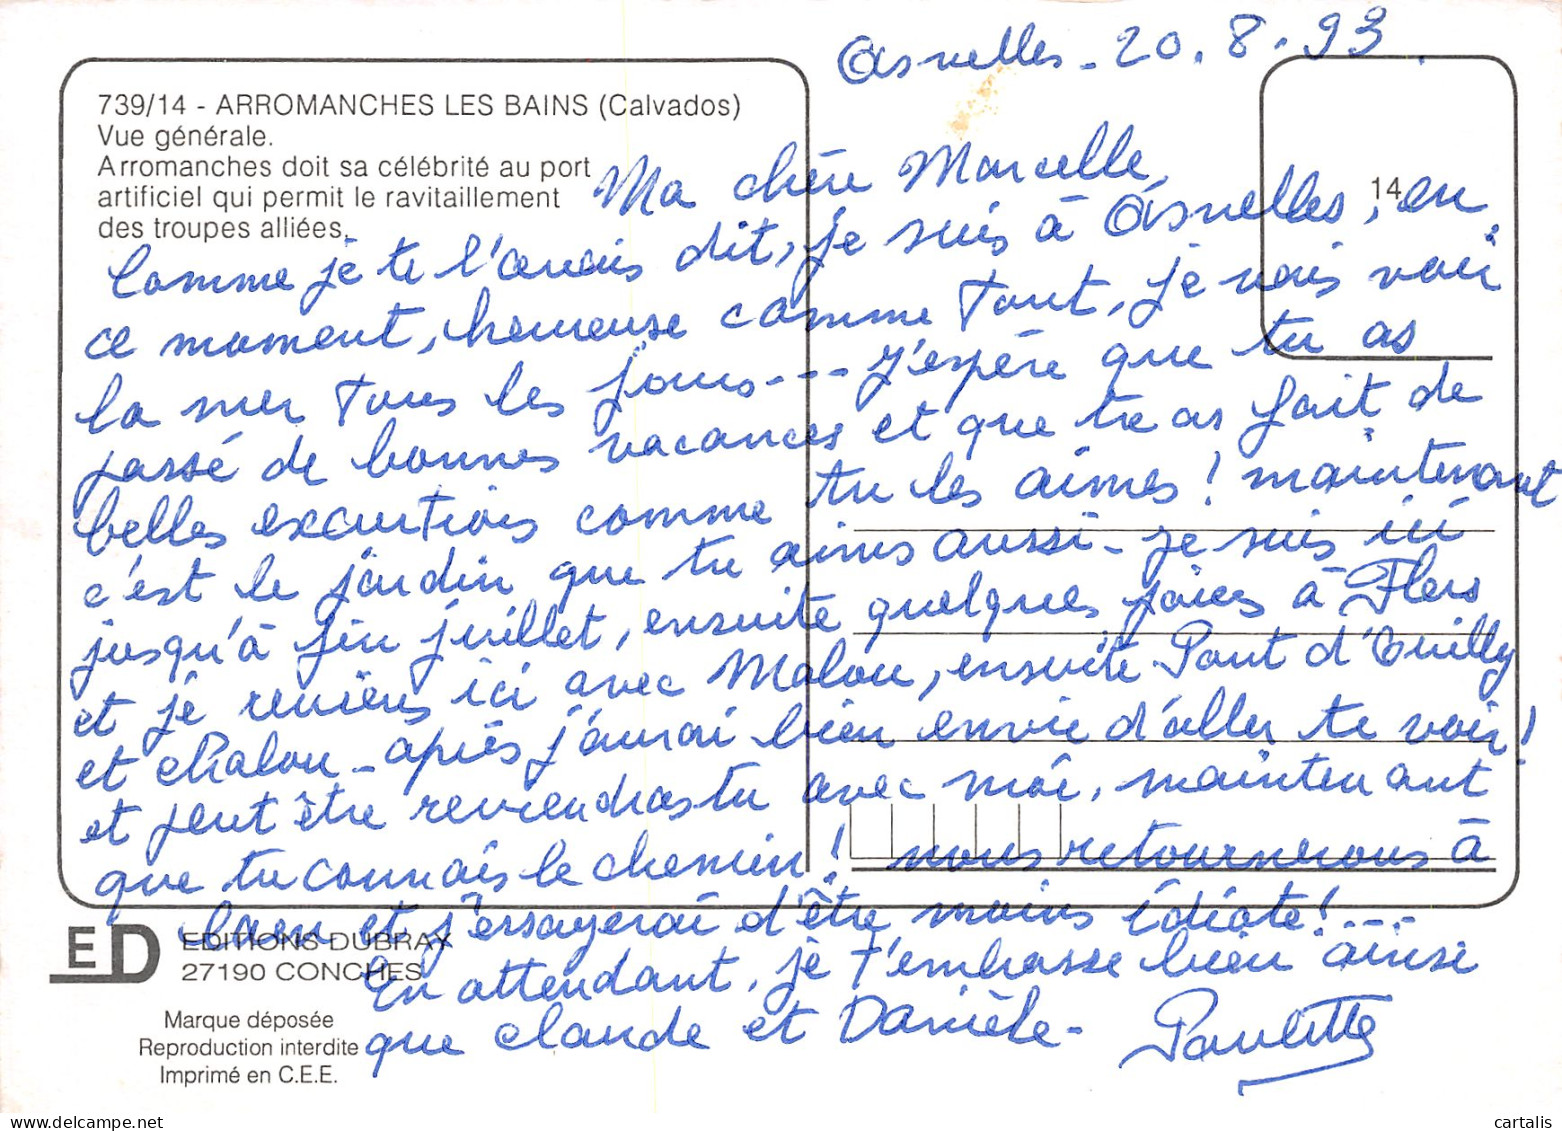 Asnelles - 20.8.93
739/14 - ARROMANCHES LES BAINS (Calvados)
Vue générale.
Arromanches doit sa célébrité au port
artificiel qui permit le ravitaillement
des troupes alliées.
14
Ma chère Marcelle,
Comme je te l'avais dit, je suis à Asnelles, en
ce moment, heureuse comme tout, je vais voir
la mer tous les jours --- J'espère que tu as
passé de bonnes vacances et que tu as fait de
belles excurtions comme tu les aimes ! maintenant
c'est le jardin que tu aimes aussi - je suis ici
jusqu'à fin juillet, ensuite quelques jours à Flers
et je reviens ici avec Malou, ensuite Pont d'Ouilly
et Chalou - après j'aurai bien envie d'aller te voir !
et peut être reviendras tu avec moi, maintenant
que tu connais le chemin ! nous retournerons à
Caen et j'essayerai d'être moins idiote ! ---
En attendant, je t'embrasse bien ainsi
que Claude et Danièle - Paulette
ED
EDITIONS DUBRAY
27190 CONCHES
Marque déposée
Reproduction interdite
Imprimé en C.E.E.
cartalis